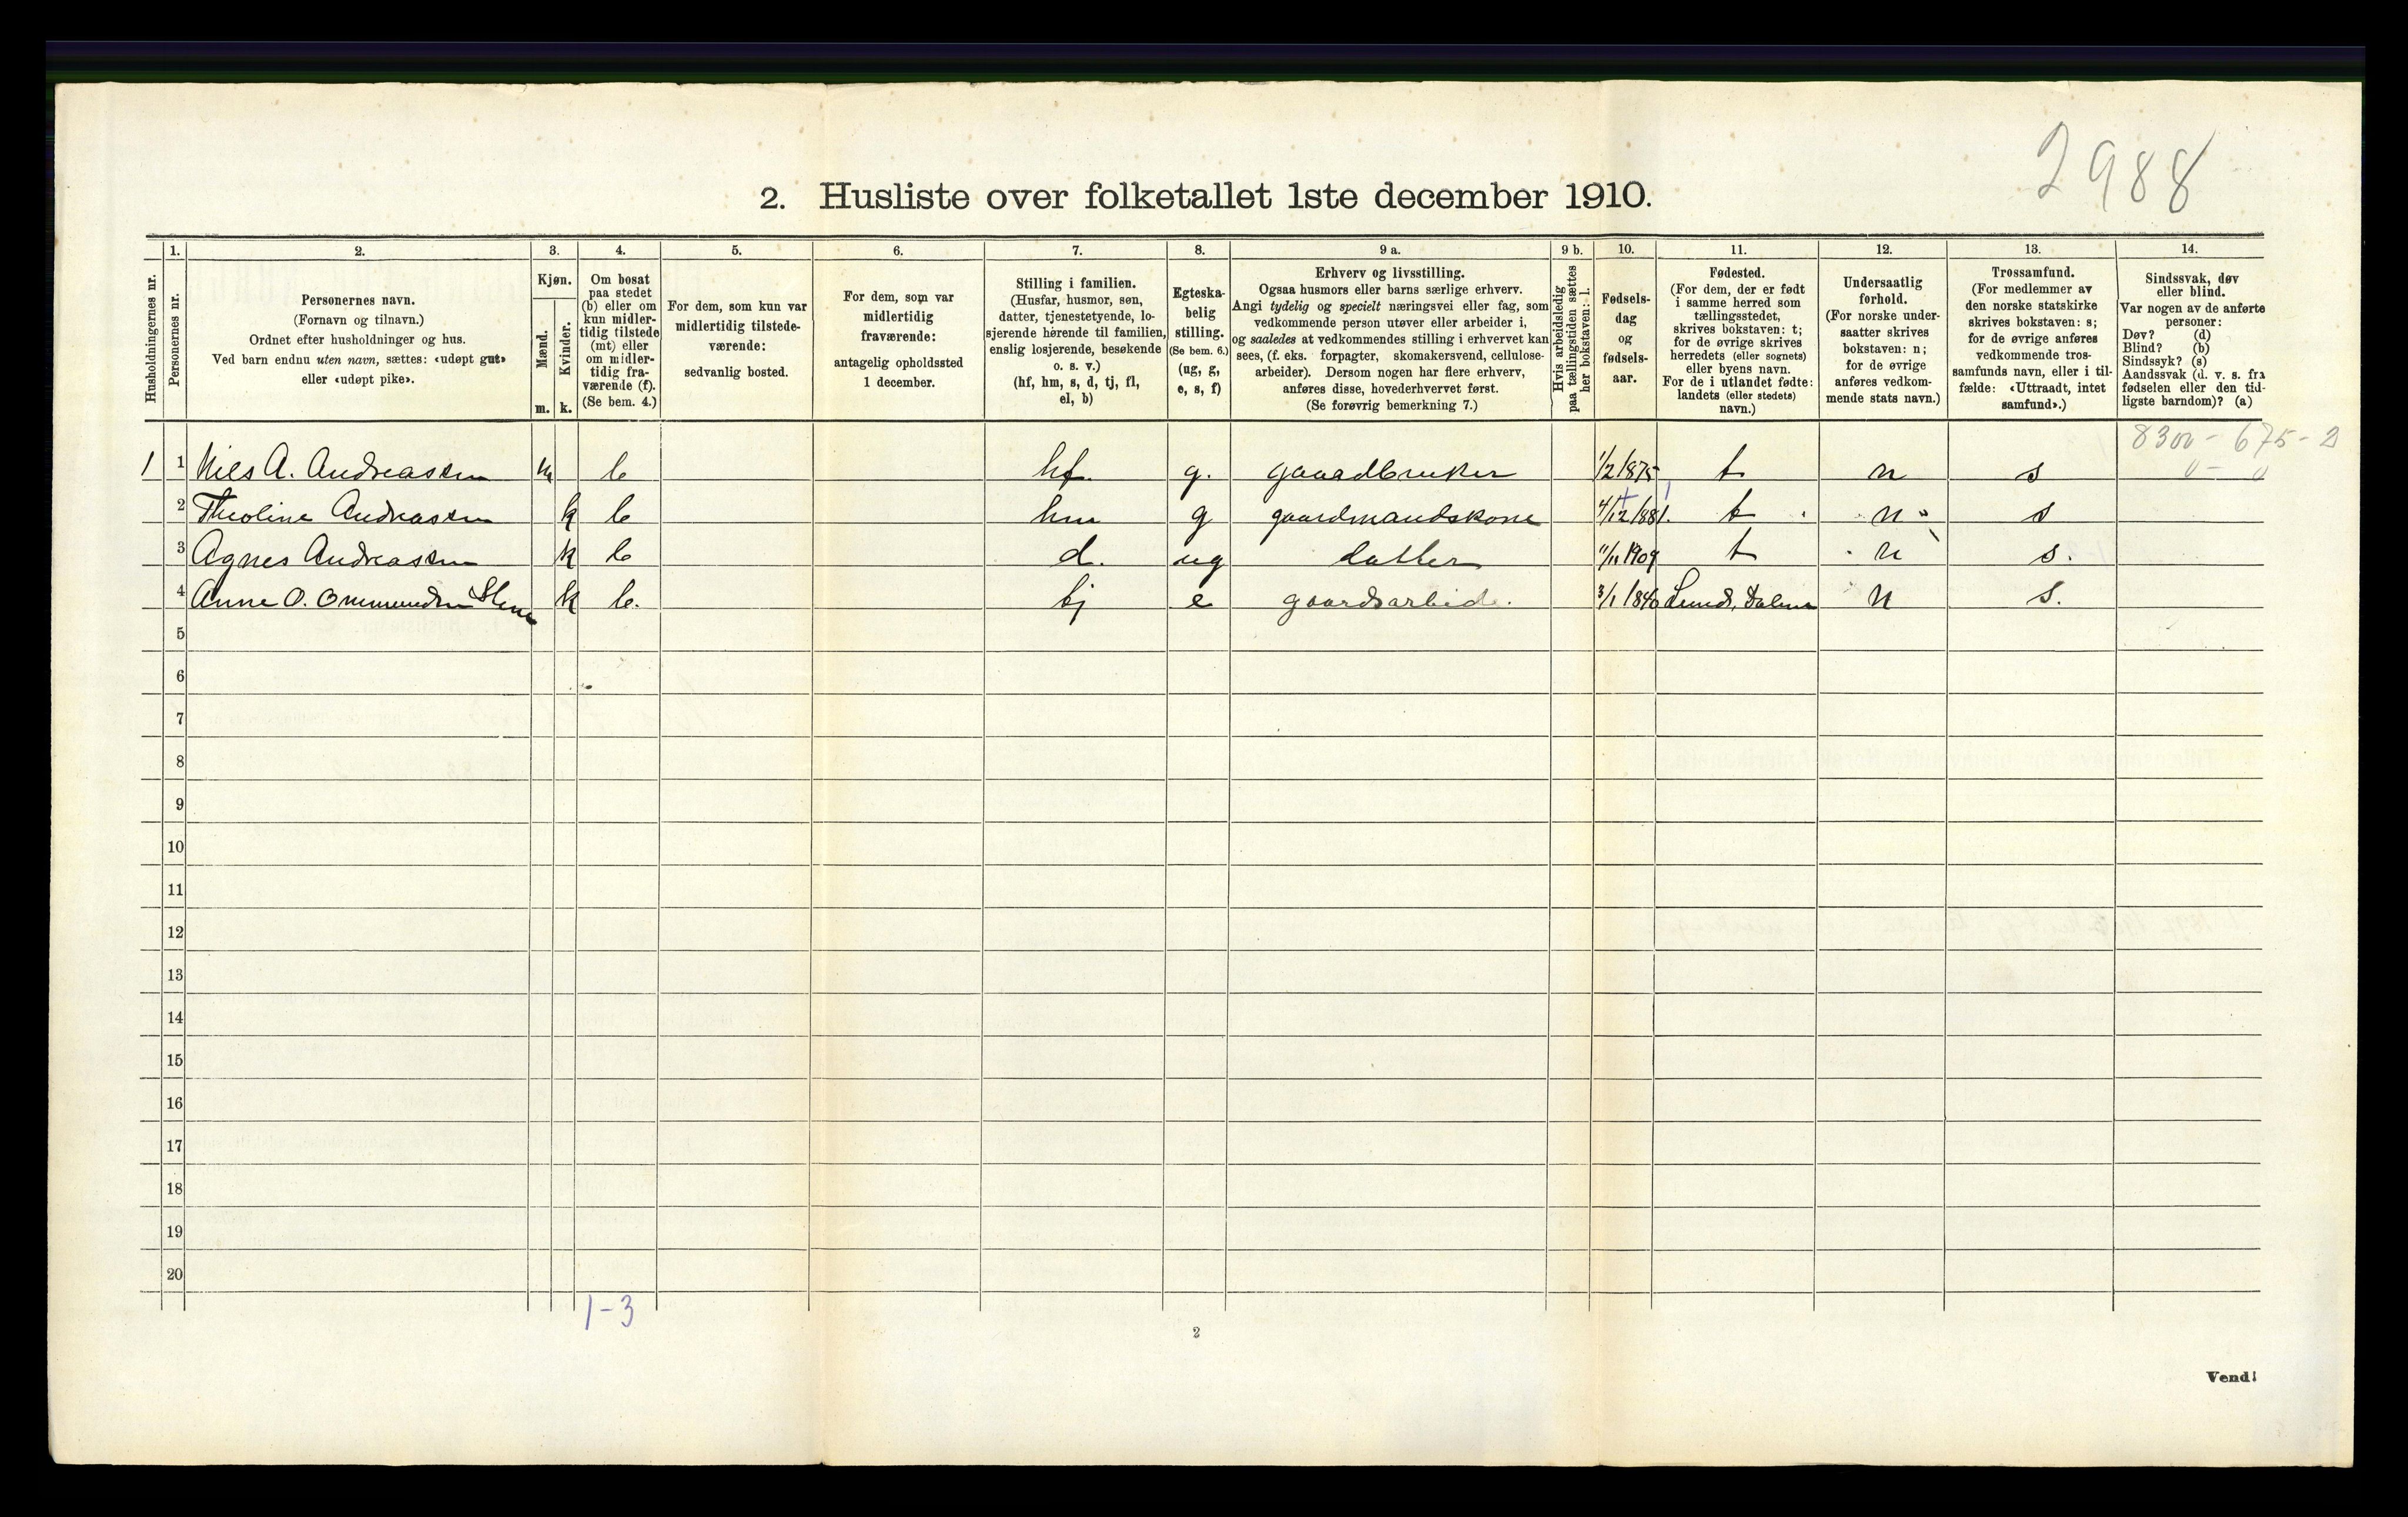 2988
2. Husliste over folketallet 1ste december 1910.
Husholdningernes nr.
1.
Personernes nr.
2.
Personernes navn.
(Fornavn og tilnavn.)
Ordnet efter husholdninger og hus.
Ved barn endnu uten navn, sættes: «udøpt gut»
eller «udøpt pike».
3.
Kjøn.
Mænd.
Kvinder.
m. k.
4.
Om bosat
paa stedet
(b) eller om
kun midler-
tidig tilstede
(mt) eller
om midler-
tidig fra-
værende (f).
(Se bem. 4.)
5.
For dem, som kun var
midlertidig tilstede-
værende:
sedvanlig bosted.
6.
For dem, som var
midlertidig
fraværende:
antagelig opholdssted
1 december.
7.
Stilling i familien.
(Husfar, husmor, søn,
datter, tjenestetyende, lo-
sjerende hørende til familien,
enslig losjerende, besøkende
o. s. v.)
(hf, hm, s, d, tj, fl,
el, b)
8.
Egteska-
belig
stilling.
(Se bem. 6.)
(ug, g,
e, s, f)
9 a.
Erhverv og livsstilling.
Ogsaa husmors eller barns særlige erhverv.
Angi tydelig og specielt næringsvei eller fag, som
vedkommende person utøver eller arbeider i,
og saaledes at vedkommendes stilling i erhvervet kan
sees, (f. eks. forpagter, skomakersvend, cellulose-
arbeider). Dersom nogen har flere erhverv,
anføres disse, hovederhvervet først.
(Se forøvrig bemerkning 7.)
9 b.
Hvis arbeidsledig
paa tællingstiden sættes
her bokstaven: l.
10.
Fødsels-
dag
og
fødsels-
aar.
11.
Fødested.
(For dem, der er født
i samme herred som
tællingsstedet,
skrives bokstaven: t;
for de øvrige skrives
herredets (eller sognets)
eller byens navn.
For de i utlandet fødte:
landets (eller stedets)
navn.)
12.
Undersaatlig
forhold.
(For norske under-
saatter skrives
bokstaven: n;
for de øvrige
anføres vedkom-
mende stats navn.)
13.
Trossamfund.
(For medlemmer av
den norske statskirke
skrives bokstaven: s;
for de øvrige anføres
vedkommende tros-
samfunds navn, eller i til-
fælde: «Uttraadt, intet
samfund».)
14.
Sindssvak, døv
eller blind.
Var nogen av de anførte
personer:
Døv? (d)
Blind? (b)
Sindssyk? (s)
Aandssvak (d. v. s. fra
fødselen eller den tid-
ligste barndom)? (a)
8300 - 675 - 2
0 - 0
1 1 Nils A. Andreassen m b hf. g. gaardbruker 1/2 1875 t n s
2 Theoline Andreassen k b hm g gaardmandskone 4/12 1881. t n s
3 Agnes Andreassen k b d. ug datter 11/11 1909 t n s.
4 Anne O. Ommundsen k b. tj e gaardsarbeide. 3/1 1846 Lund, Dalene n s.
5
6
7
8
9
10
11
12
13
14
15
16
17
18
19
20
1-3
2
Vend!